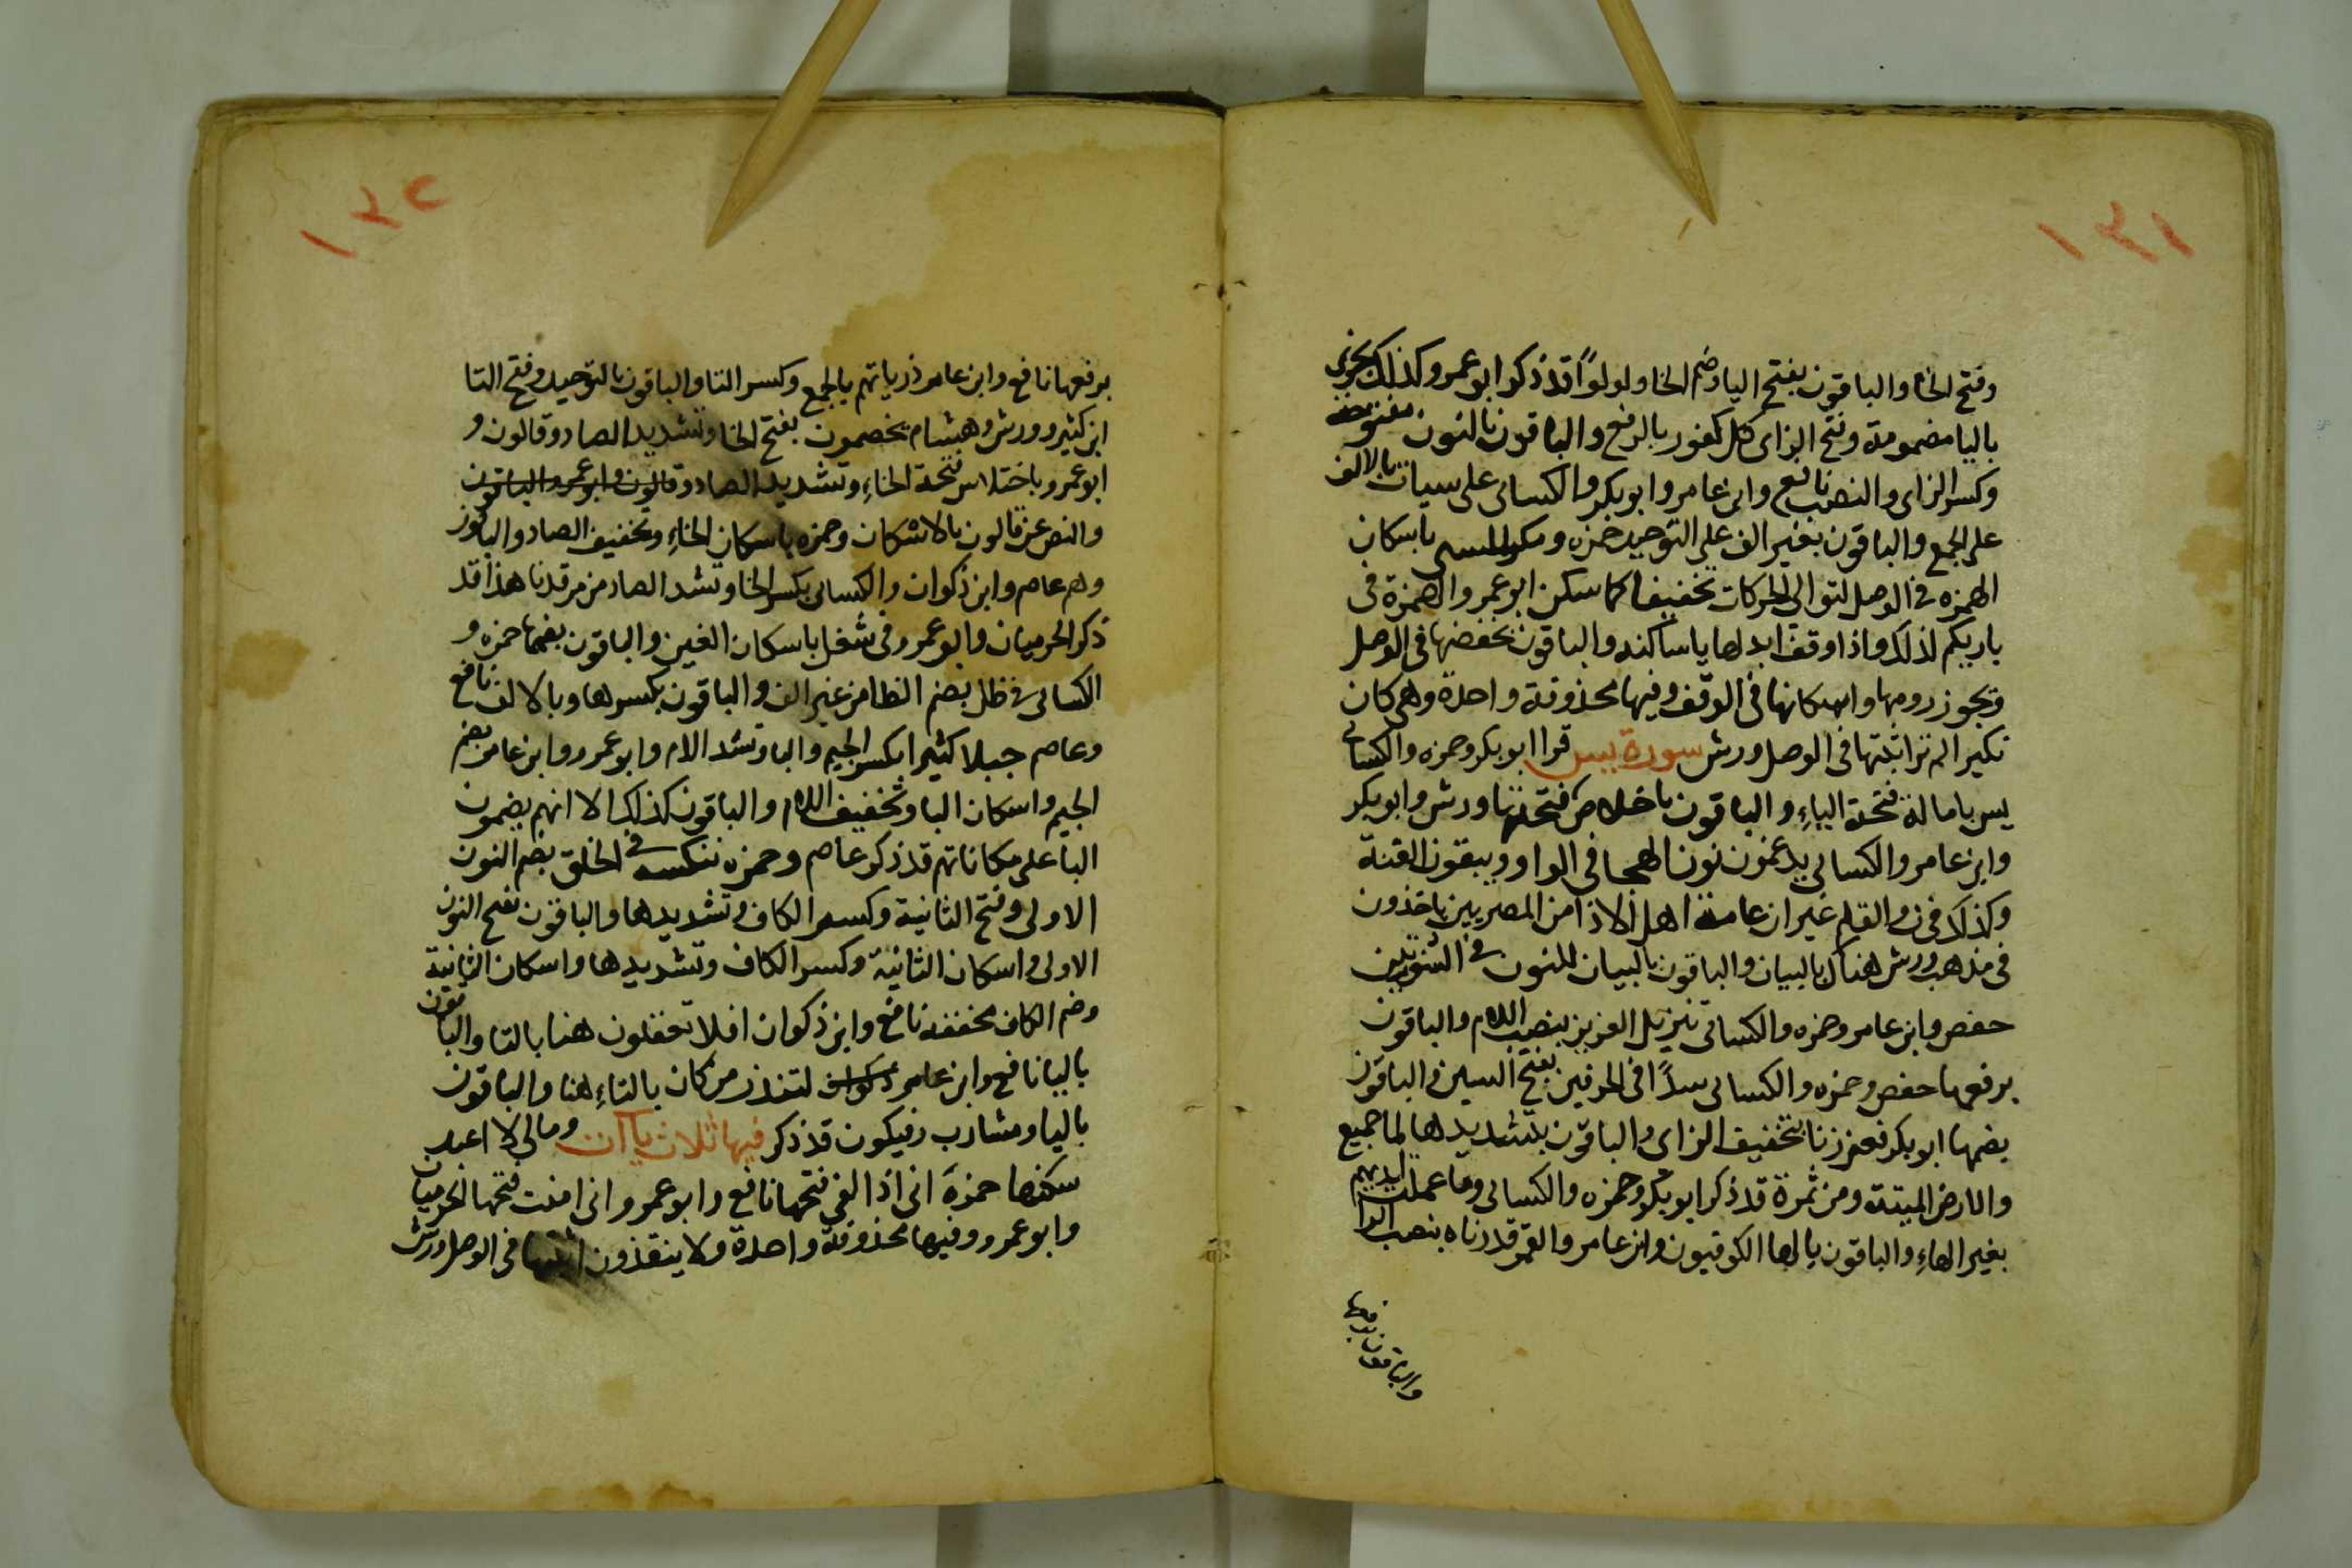 ١٣١
وفتح الخا والباقون بفتح اليا وضم الخا ولولوًا قد ذكر ابو عمرو وكذلك يجزى
باليا مضمومة وفتح الزاى كل كفور بالرفع والباقون بالنون مفتوحة
وكسر الزاى والنصب نافع وابن عامر وابو بكر والكسائى على سيات بالالف
على الجمع والباقون بغير الف على التوحيد حمزه ومكر السىى باسكان
الهمزه فى الوصل لتوالى الحركات تخفيفا كما سكن ابو عمرو الهمزة فى
باريكم لذلك واذا وقف ابدلها ياساكنه والباقون بخفضها فى الوصل
وتجوز رومها واسكانها فى الوقف وفيها محذوفة واحدة وهى كان
نكير الم تر اثبتها فى الوصل ورش سورة يس قرا ابو بكر وحمزه والكسائى
يس بامالة فتحة الياءِ والباقون باخلاص فتحتها ورش وابو بكر
وابن عامر والكسائى يدغمون نون الهجا فى الواو ويبقون الغنة
وكذلك فى ن والقلم غير ان عامة اهل الاذا من المصريين ياخذون
فى مذهب ورش هناك بالبيان والباقون بالبيان للنون فى السورتين
حفص وابن عامر وحمزه والكسائى تنزيل العزيز بنصب اللام والباقون
برفعها حفص وحمزه والكسائى سدًا فى الحرفين بفتح السين والباقون
بضمها ابو بكر فعززنا بتخفيف الزاى والباقون بتشديدها لما جميع
والارض الميتة ومن ثمرة قد ذكر ابو بكر وحمزه والكسائى وما عملت ايديهم
بغير الهاءِ والباقون بالها الكوفيون وابن عامر والقمر قدرناه بنصب الرا
والباقون برفعها
١٣٢
برفعها نافع وابن عامر ذرياتهم بالجمع وكسر التا والباقون بالتوحيد وفتح التا
ابن كثير وورش وهشام يخصمون بفتح الخا وتشديد الصاد وقالون و
ابو عمرو باختلاس فتحة الخاءِ وتشديد الصاد وقالون وابو عمرو والباقون
والنص عن قالون بالاسكان وحمزه باسكان الخاءِ وتخفيف الصاد والباقون
وهم عاصم وابن ذكوان والكسائى بكسر الخا وتشد الصاد من مرقدنا هذا قد
ذكر الحرميان وابو عمرو فى شغل باسكان الغين والباقون بضمها حمزه و
الكسائى فى ظلل بضم الظا من غير الف والباقون بكسرها وبالالف نافع
وعاصم جبلا كثيرا بكسر الجيم والبا وتشد الام وابو عمرو وابن عامر بضم
الجيم واسكان البا وتخفيف اللام والباقون كذلك الا انهم يضمون
البا على مكاناتهم قد ذكر عاصم وحمزه ننكسه فى الخلق بضم النون
الاولى وفتح الثانية وكسر الكاف وتشديدها والباقون بفتح النون
الاولى واسكان الثانية وكسر الكاف وتشديدها واسكان الثانية
وضم الكاف مخففه نافع وابن ذكوان افلا تعقلون هنا بالتا والباقون
باليا نافع وابن عامر ذكوان لتنذر من كان بالتاءِ هنا والباقون
باليا ومشارب وفيكون قد ذكر فيها ثلاث ياآت ومالى لا اعبد
سكنها حمزة انى اذا لفى فتحها نافع وابو عمرو وانى امنت فتحها الحرميان
وابو عمرو وفيها محذوفة واحدة ولا ينقذون اثبتها فى الوصل ورش